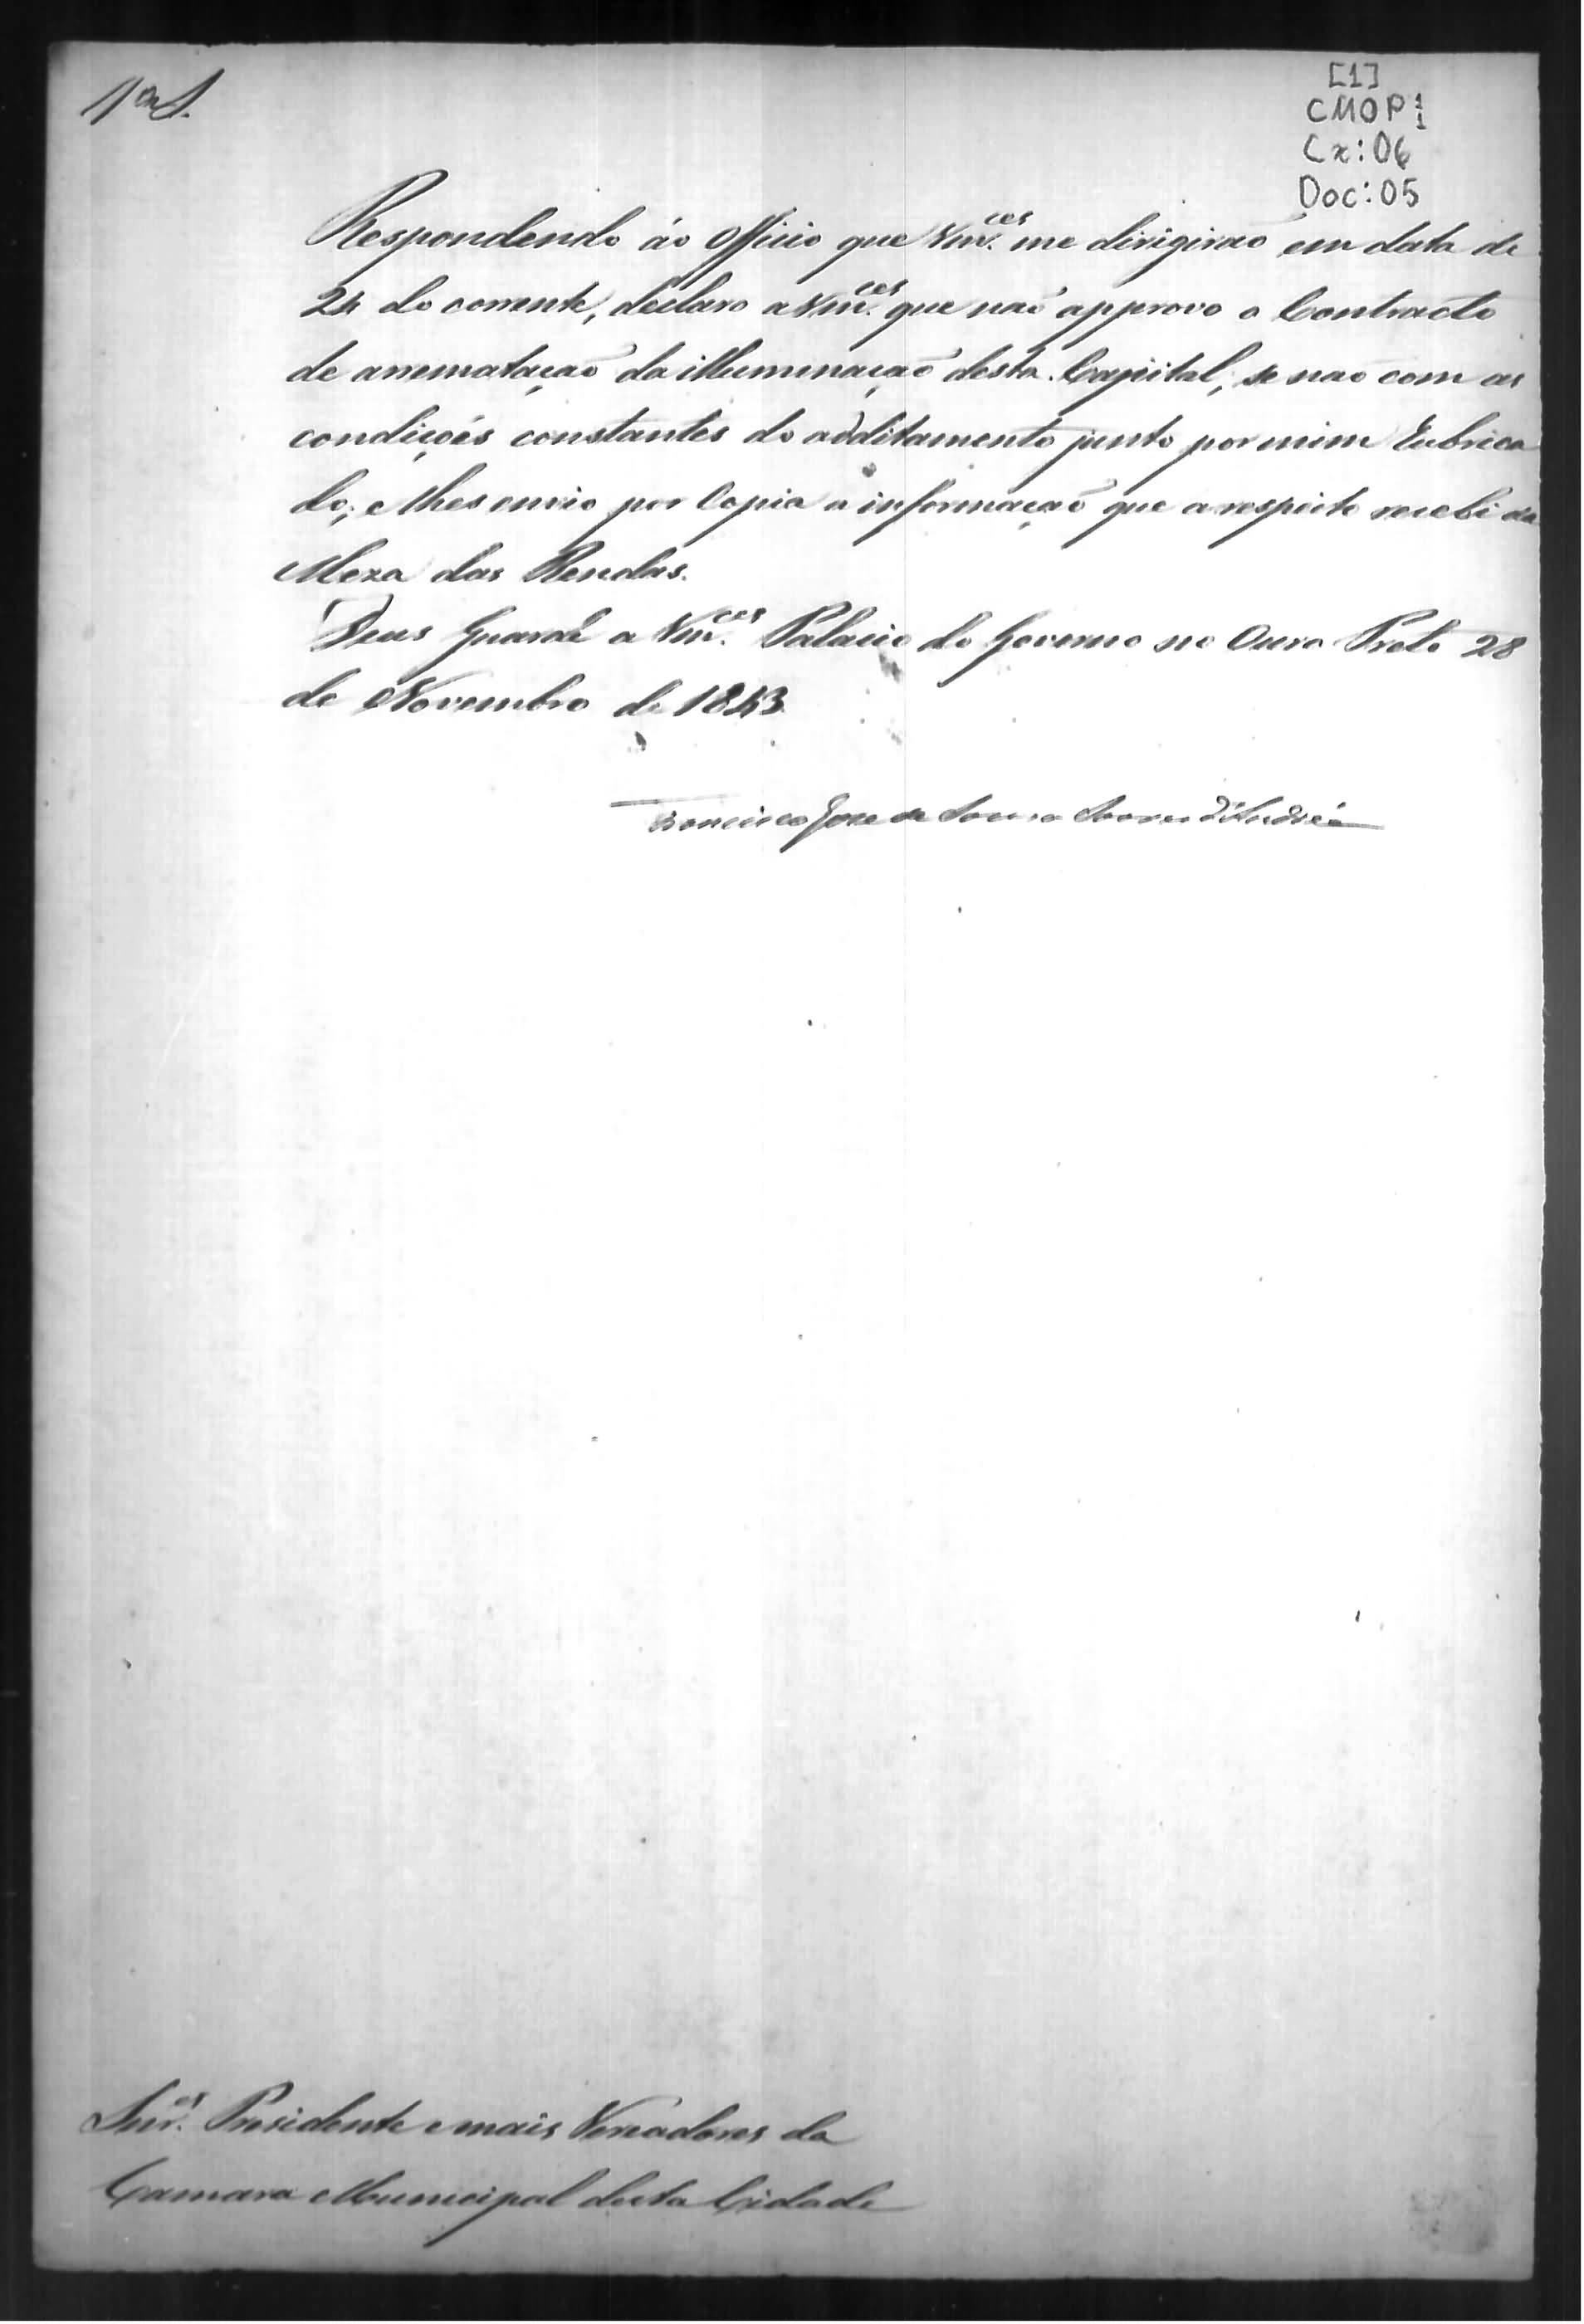 1ª S.
[1]
CMOP 1/1
Cx: 06
Doc: 05
Respondendo áo Officio que Vm.ces me dirigirão em data de
24 do corrente, declaro a Vm.ces que não approvo o Contracto
de arrematação da illuminação desta Capital, se não com as
condições constantes do additamento junto por mim Rubrica
do, e lhes envio por Copia a informação que a respeito recebi da
Meza das Rendas.
Deus Guarde a Vm.ces Palacio do Governo no Ouro Preto 28
de Novembro de 1843
Francisco Jose de Souza Soares d'Andréa
Snr.es Presidente e mais Vereadores da
Camara Municipal desta Cidade